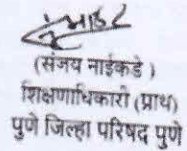 (संजय नाईकडे )
शिक्षणाधिकारी (प्राथ)
पुणे जिल्हा परिषद पुणे